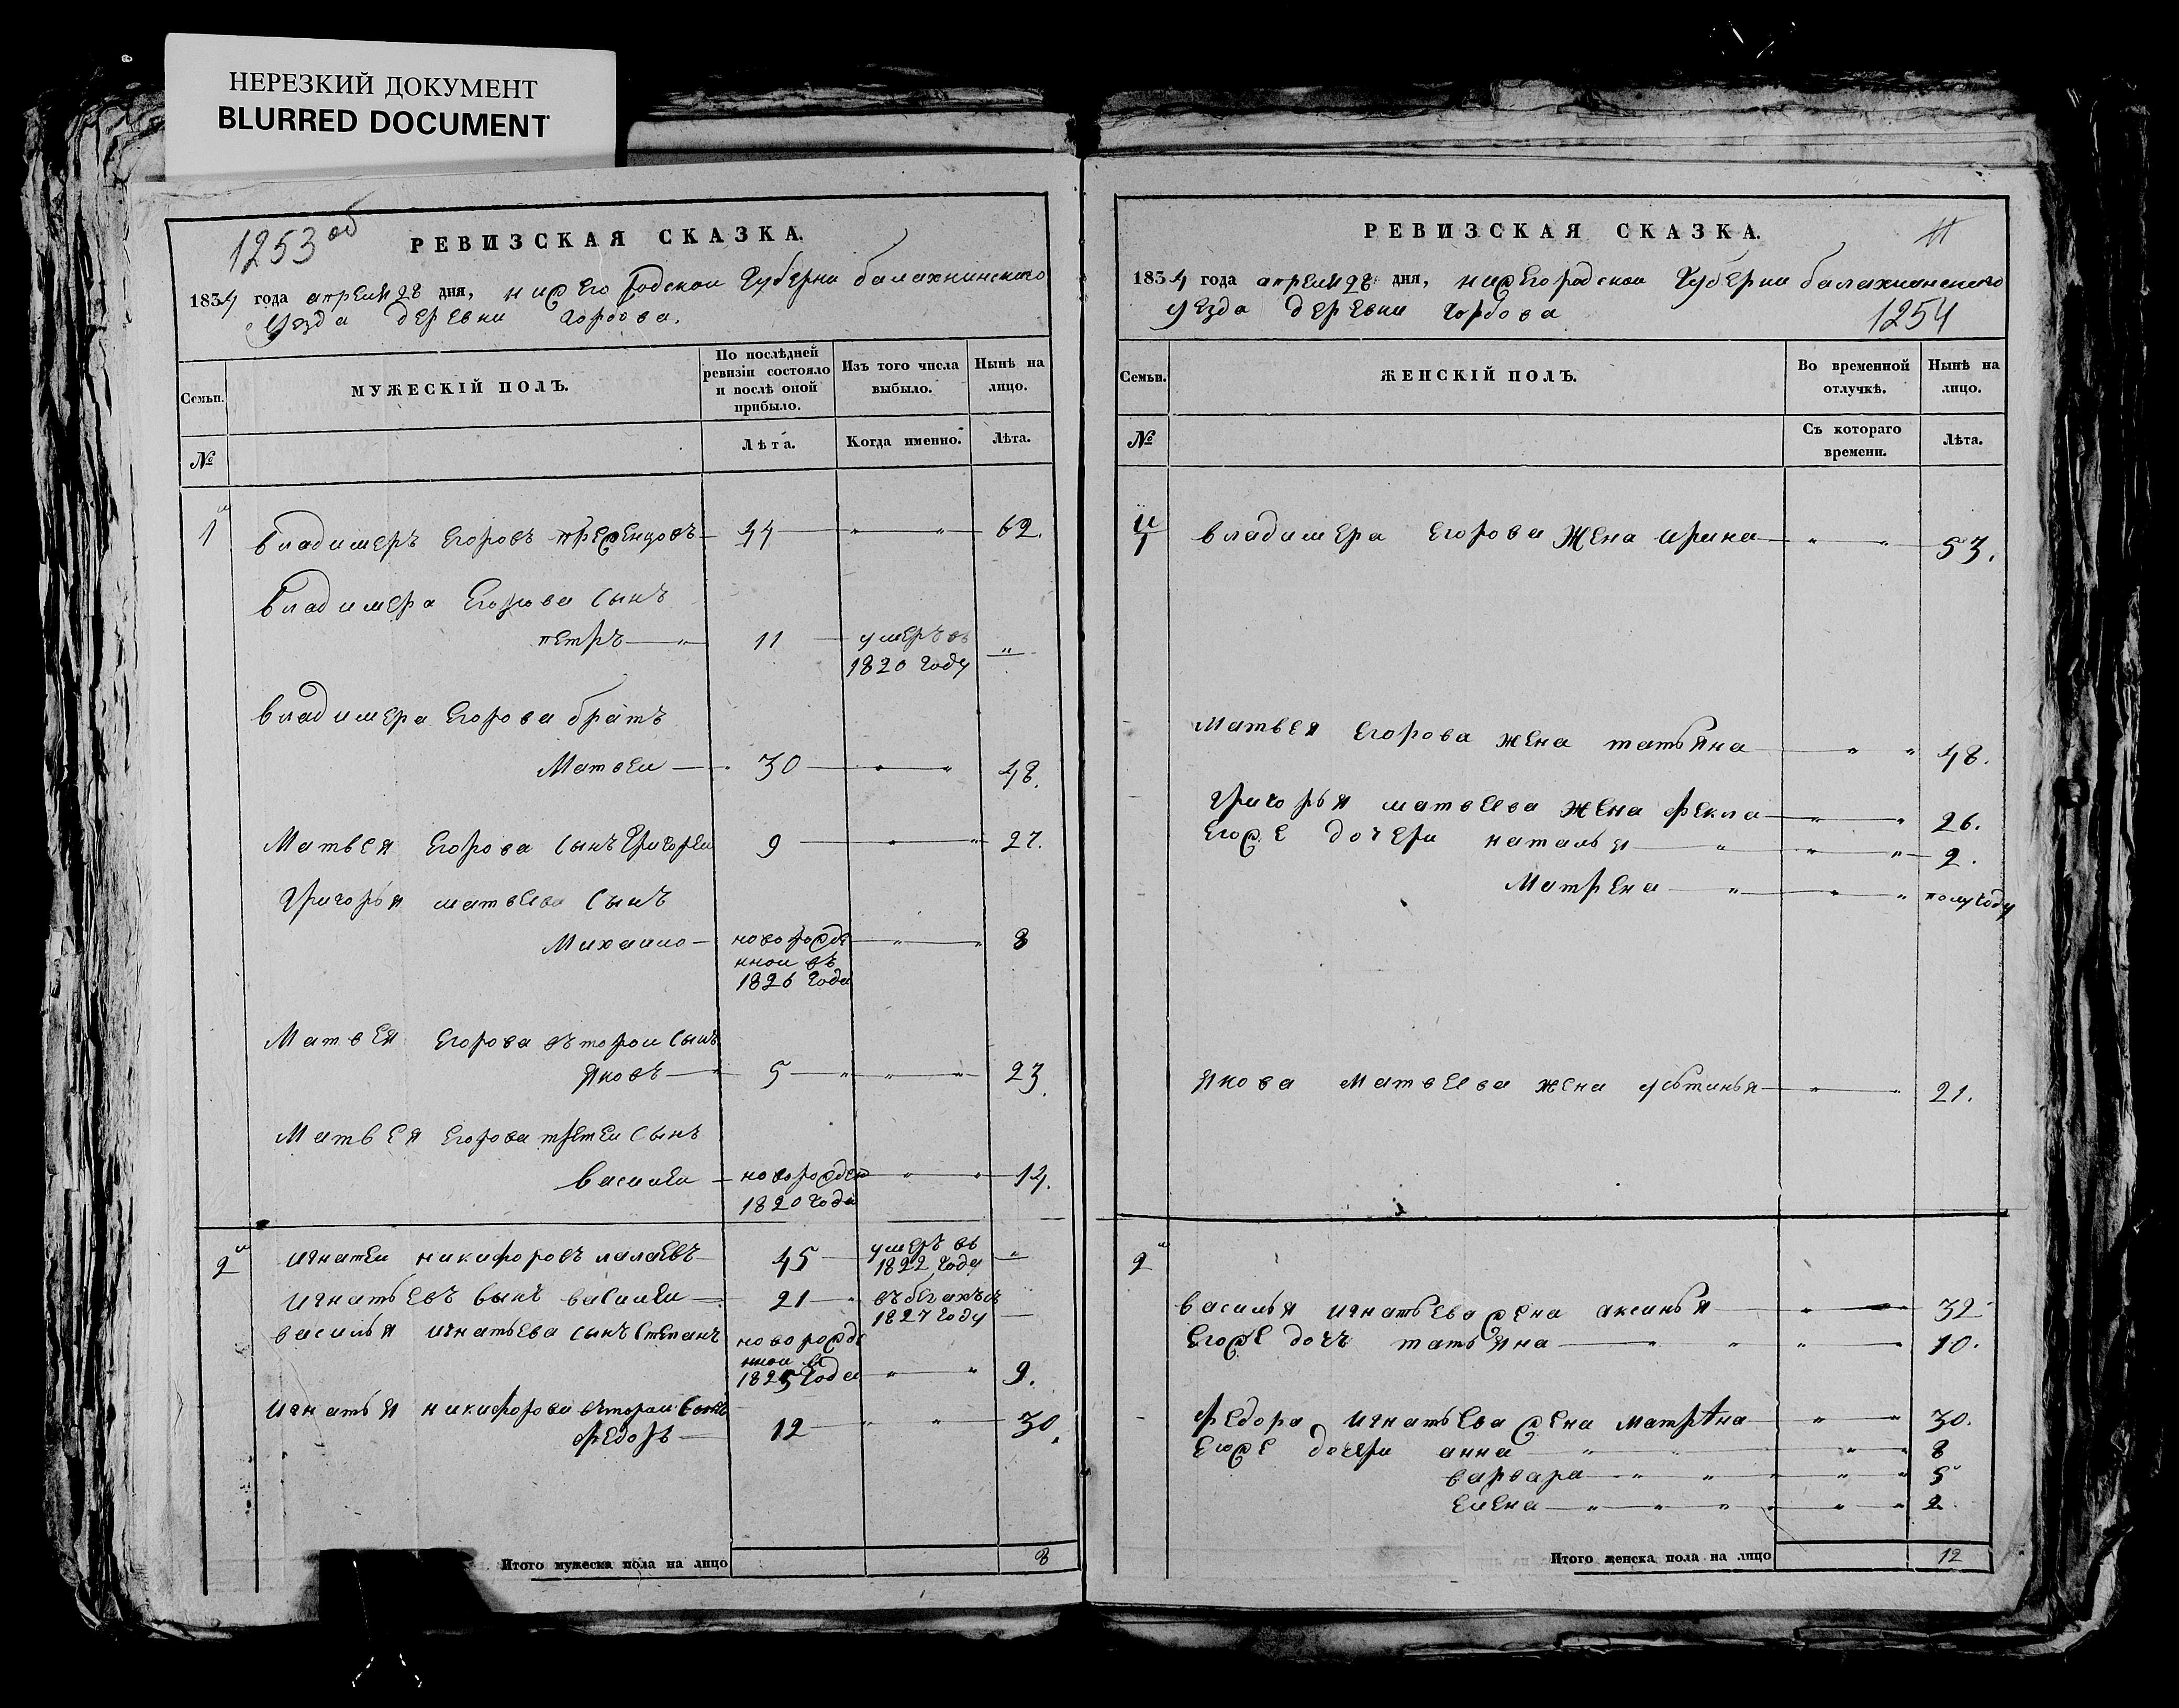 НЕРЕЗКИЙ ДОКУМЕНТ
BLURRED DOCUMENT
1253 об
РЕВИЗСКАЯ СКАЗКА.
1834 года апреля 28 дня, нижегородской губерни балахнинского
уезда деревни горбова.
Семьи.
МУЖЕСКІЙ ПОЛЪ.
По послѣдней ревизіи состояло и послѣ оной прибыло.
Изъ того числа выбыло.
Нынѣ на лицо.
№
Лѣта.
Когда именно.
Лѣта.
1й владимеръ егоровъ 44 " " 62.
владимера егорова сынъ
петръ " 11 умеръ въ
1820 году "
владимера егорова братъ
Матвеи " 30 " " 48.
Матвея егорова сынъ григореи 9 " " 27.
григорья матвеева сынъ
Михаило новорожде " " 8
нной въ
1826 года
Матвея егорова въторои сынъ
яковъ " 5 " " " 23.
Матвея егорова третеи сынъ
василеи новорожден " " 14.
1820 года
2й игнатеи никифоровъ лалаевъ 45 умеръ въ
1822 году "
игнатьевъ сынъ василеи 21 " въ бегахъ съ
1827 году
василья игнатьева сынъ степанъ новорожде
нной въ
1825 года " " 9.
игнатья никифорова въторои сынъ
федоръ 12 " " 30.
Итого мужеска пола на лицо 8
РЕВИЗСКАЯ СКАЗКА.
11
1834 года апреля 28 дня, нижегородской губерни балахнинского
уезда деревни горбова
1254
Семьи.
ЖЕНСКІЙ ПОЛЪ.
Во временной отлучкѣ.
Нынѣ на лицо.
№
Съ котораго времени.
Лѣта.
1й владимера егорова жена ирина " " 53.
Матвея егорова жена татьяна " " 48.
григорья матвеева жена фекла " " 26.
егоже дочери наталья " " " 2.
Матрена " " " полугоду
якова матвеева жена устинья " " 21.
2й
василья игнатьева жена аксинья " " 32
егоже дочъ татьяна " " " " 10.
федора игнатьева жена матрѣна " " 30.
егоже дочери анна " " " " 8
варвара " " " " " 5
елена " " " " " " 2
Итого женска пола на лицо 12